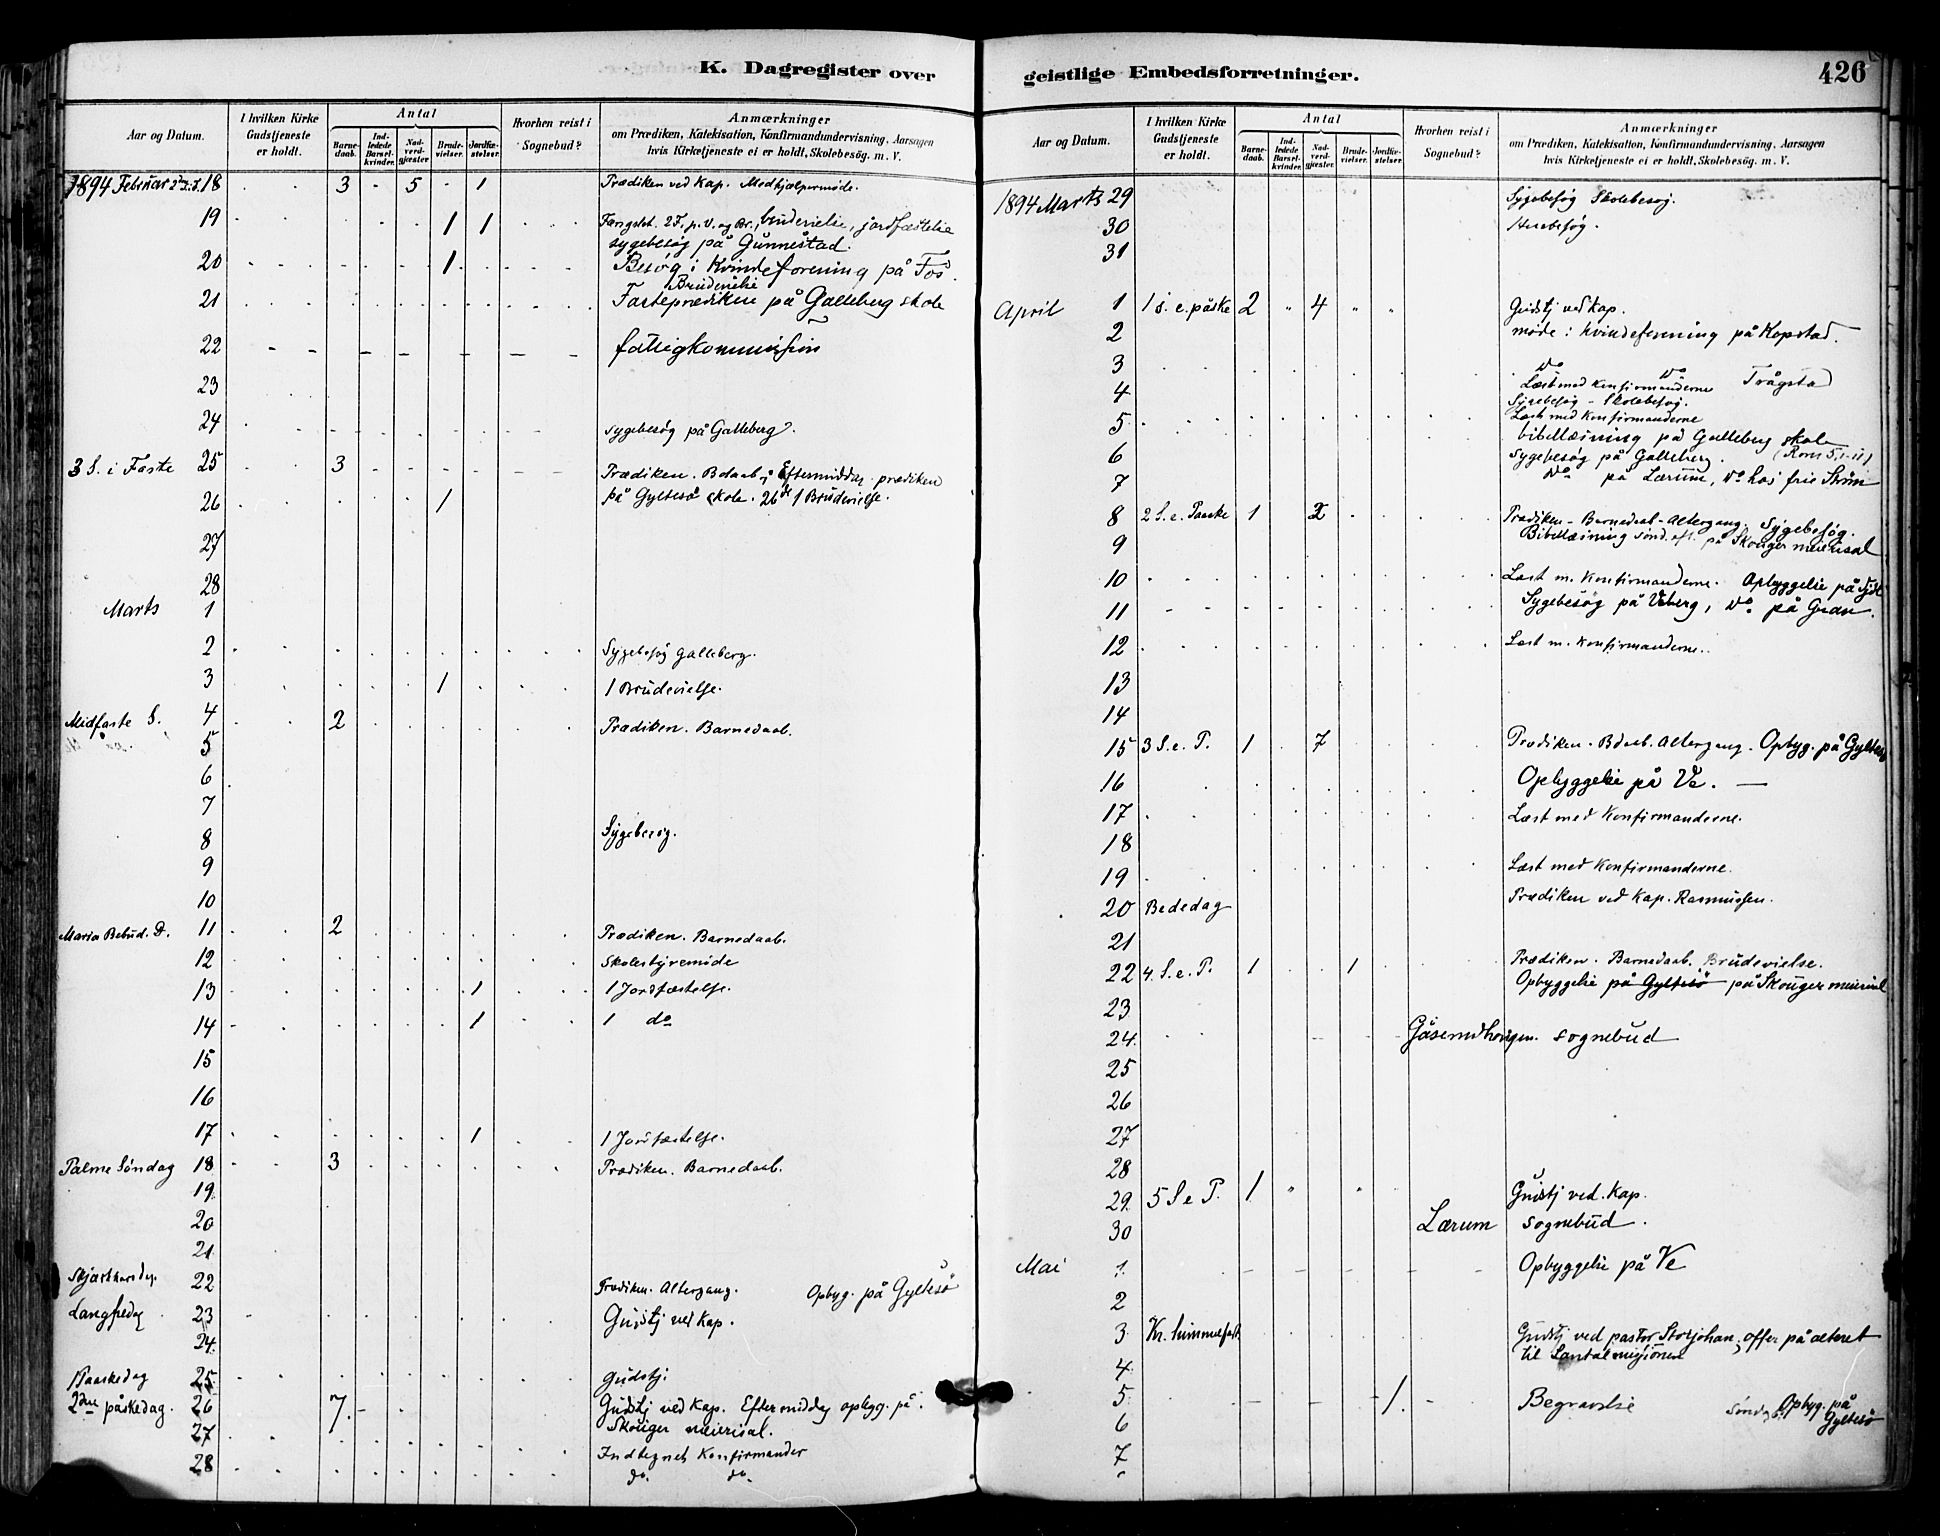 K. Dagregister over
Aar og Datum.
I hvilken Kirke Gudstjeneste er holdt.
Antal
Barnedaab.
Indledede Barselkvinder.
Nadverdgjester
Brudevielser.
Jordfæstelser.
Hvorhen reist i Sognebud?
Anmærkninger
om Prædiken, Katekisation, Konfirmandundervisning, Aarsagen
hvis Kirketjeneste ei er holdt, Skolebesög. m. V.
1894 Februar 18 3 - 5 - 1 Prædiken ved Kap. Medhjælpermøde.
19 1 1 brudevielse, jordfæstelse
sygebesøg på Gunnestad.
20 1 Besøg i Kvindeforening på Fos.
Brudevielse
21 Fasteprædiken på Galleberg skole
22 fattigkommission
23
24 sygebesøg på Galleberg.
3 S. i Faste 25 3 Prædiken. Bdaab, Eftermiddag prædiken
26 1 på Gyltesø skole. 26de 1 Brudevielse.
27
28
Marts 1
2 Sygebesøg Galleberg.
3 1 1 Brudevielse.
Midfaste S. 4 2 Prædiken. Barnedaab.
5
6
7
8 Sygebesøg.
9
10
Maria Bebud. D. 11 2 Prædiken. Barnedaab.
12 Skolestyremøde
13 1 1 Jordfæstelse.
14 1 1 do
15
16
17 1 1 Jordfæstelse.
Palme Søndag 18 3 Prædiken. Barnedaab.
19
20
21
Skjærthorsdag. 22 Prædiken. Altergang. Opbyg. på Gyltesö
Langfredag 23 Gudstj ved Kap.
24
Paaskedag 25 Gudstj.
2den påskedag. 26 7 Gudstj ved Kap. Eftermiddag opbygg. på
27 Skouger meierisal.
28 Indtegnet Konfirmander
do. do.
geistlige Embedsforretninger.
426
Aar og Datum.
I hvilken Kirke Gudstjeneste er holdt.
Antal
Barnedaab.
Indledede Barselkvinder.
Nadverdgjester
Brudevielser.
Jordfæstelser.
Hvorhen reist i Sognebud?
Anmærkninger
om Prædiken, Katekisation, Konfirmandundervisning, Aarsagen
hvis Kirketjeneste ei er holdt, Skolebesög. m. V.
1894 Marts 29 Sygebesøg Skolebesøg.
30 Husbesøg.
31
April 1 1 s. e. påske 2 " 4 " " Gudstj ved Kap.
2 møde i kvindeforening på Kopstad.
3 do do Trågstad
4 Læst med Konfirmanderne
Sygebesøg - Skolebesøg.
5 Læst med Konfirmanderne
bibellæsning på Galleberg skole
6 Sygebesøg på Galleberg.
7 do på Lærum, do hos frie Strøm
8 2 S. e. Paaske 1 2 Prædiken - Barnedaab - Altergang. Sygebesøg.
9 Bibellæsning på Skouger meierisal
10 Læst m. Konfirmanderne. Opbyggelse på
11 Sygebesøg på Veberg, do på Gran.
12 Læst m. Konfirmanderne.
13
14
15 3 S. e. P. 1 7 Prædiken. Bdaab. Altergang. Opbyg. på Gyltesø
16 Opbyggelse på Ve. —
17 Læst med Konfirmanderne.
18
19 Læst med Konfirmanderne.
20 Bededag Prædiken ved Kap. Rasmussen.
21
22 4. S. e. P. 1 1 Prædiken. Barnedaab. Brudevielse.
Opbyggelse på Gyltesö på Skouger meierisal
23
24. sognebud
25
26
27
28
29. 5 S e P. 1 " " Gudstj ved. Kap.
30 Lærum sognebud.
Mai 1. Opbyggelse på Ve
2
3. Kr. himmelfart Gudstj ved pastor Storjohan, offer på alteret
til Santalmisjonen
4.
5. 1. Begravelse Søndag Opbyg. på
Gyltesø
6
7